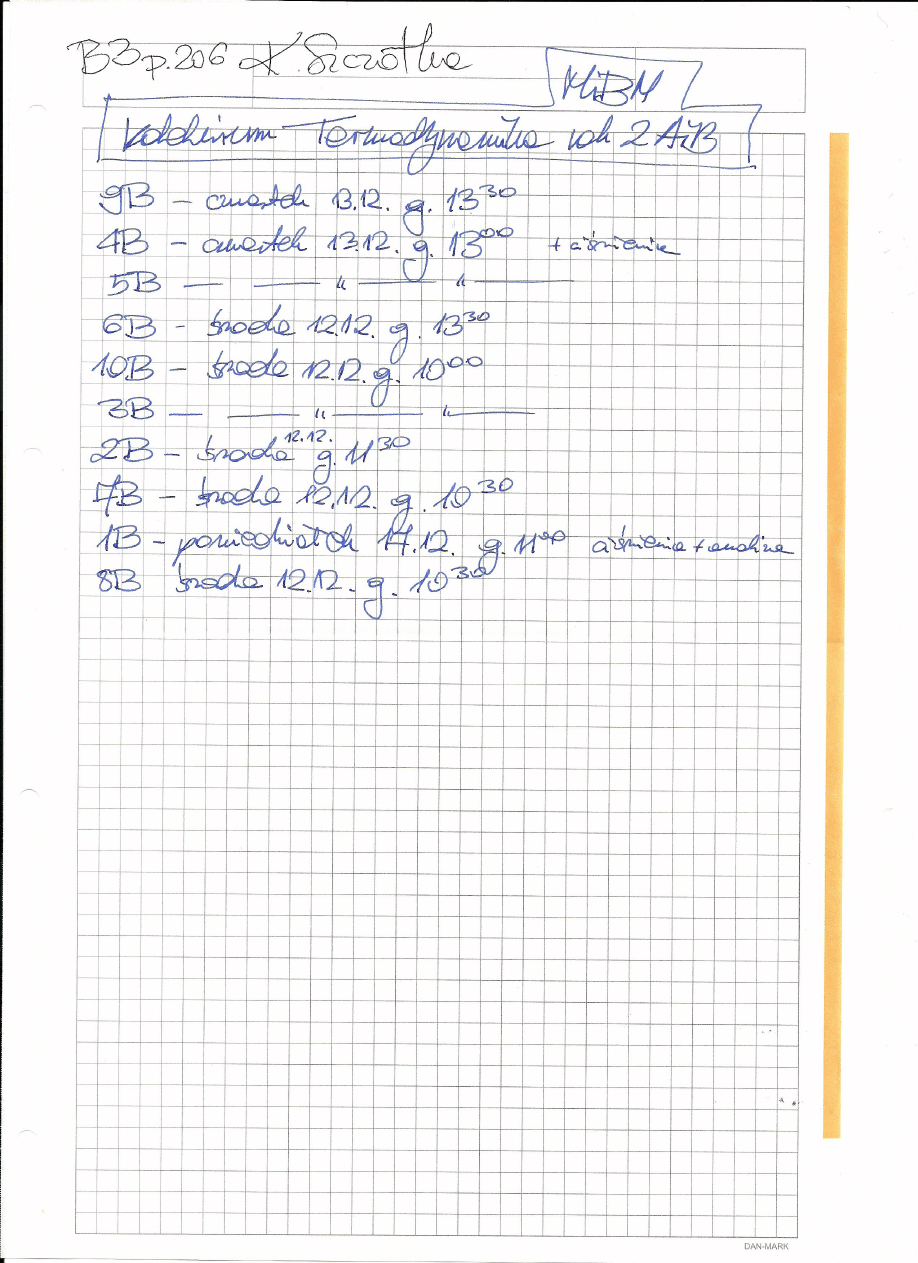 B3 p.206 K. Szczotka
MiBM
Kolokwium Termodynamika rok 2 AiB
9B - czwartek 13.12. g. 13³⁰
4B - czwartek 13.12. g. 13⁰⁰ + ciśnienie
5B — — " — " —
6B - środa 12.12. g. 13³⁰
10B - środa 12.12. g. 10⁰⁰
3B — — " — " —
2B - środa 12.12. g. 11³⁰
7B - środa 12.12. g. 10³⁰
1B - poniedziałek 17.12. g. 11⁰⁰ ciśnienie +
8B środa 12.12. g. 10³⁰
DAN-MARK